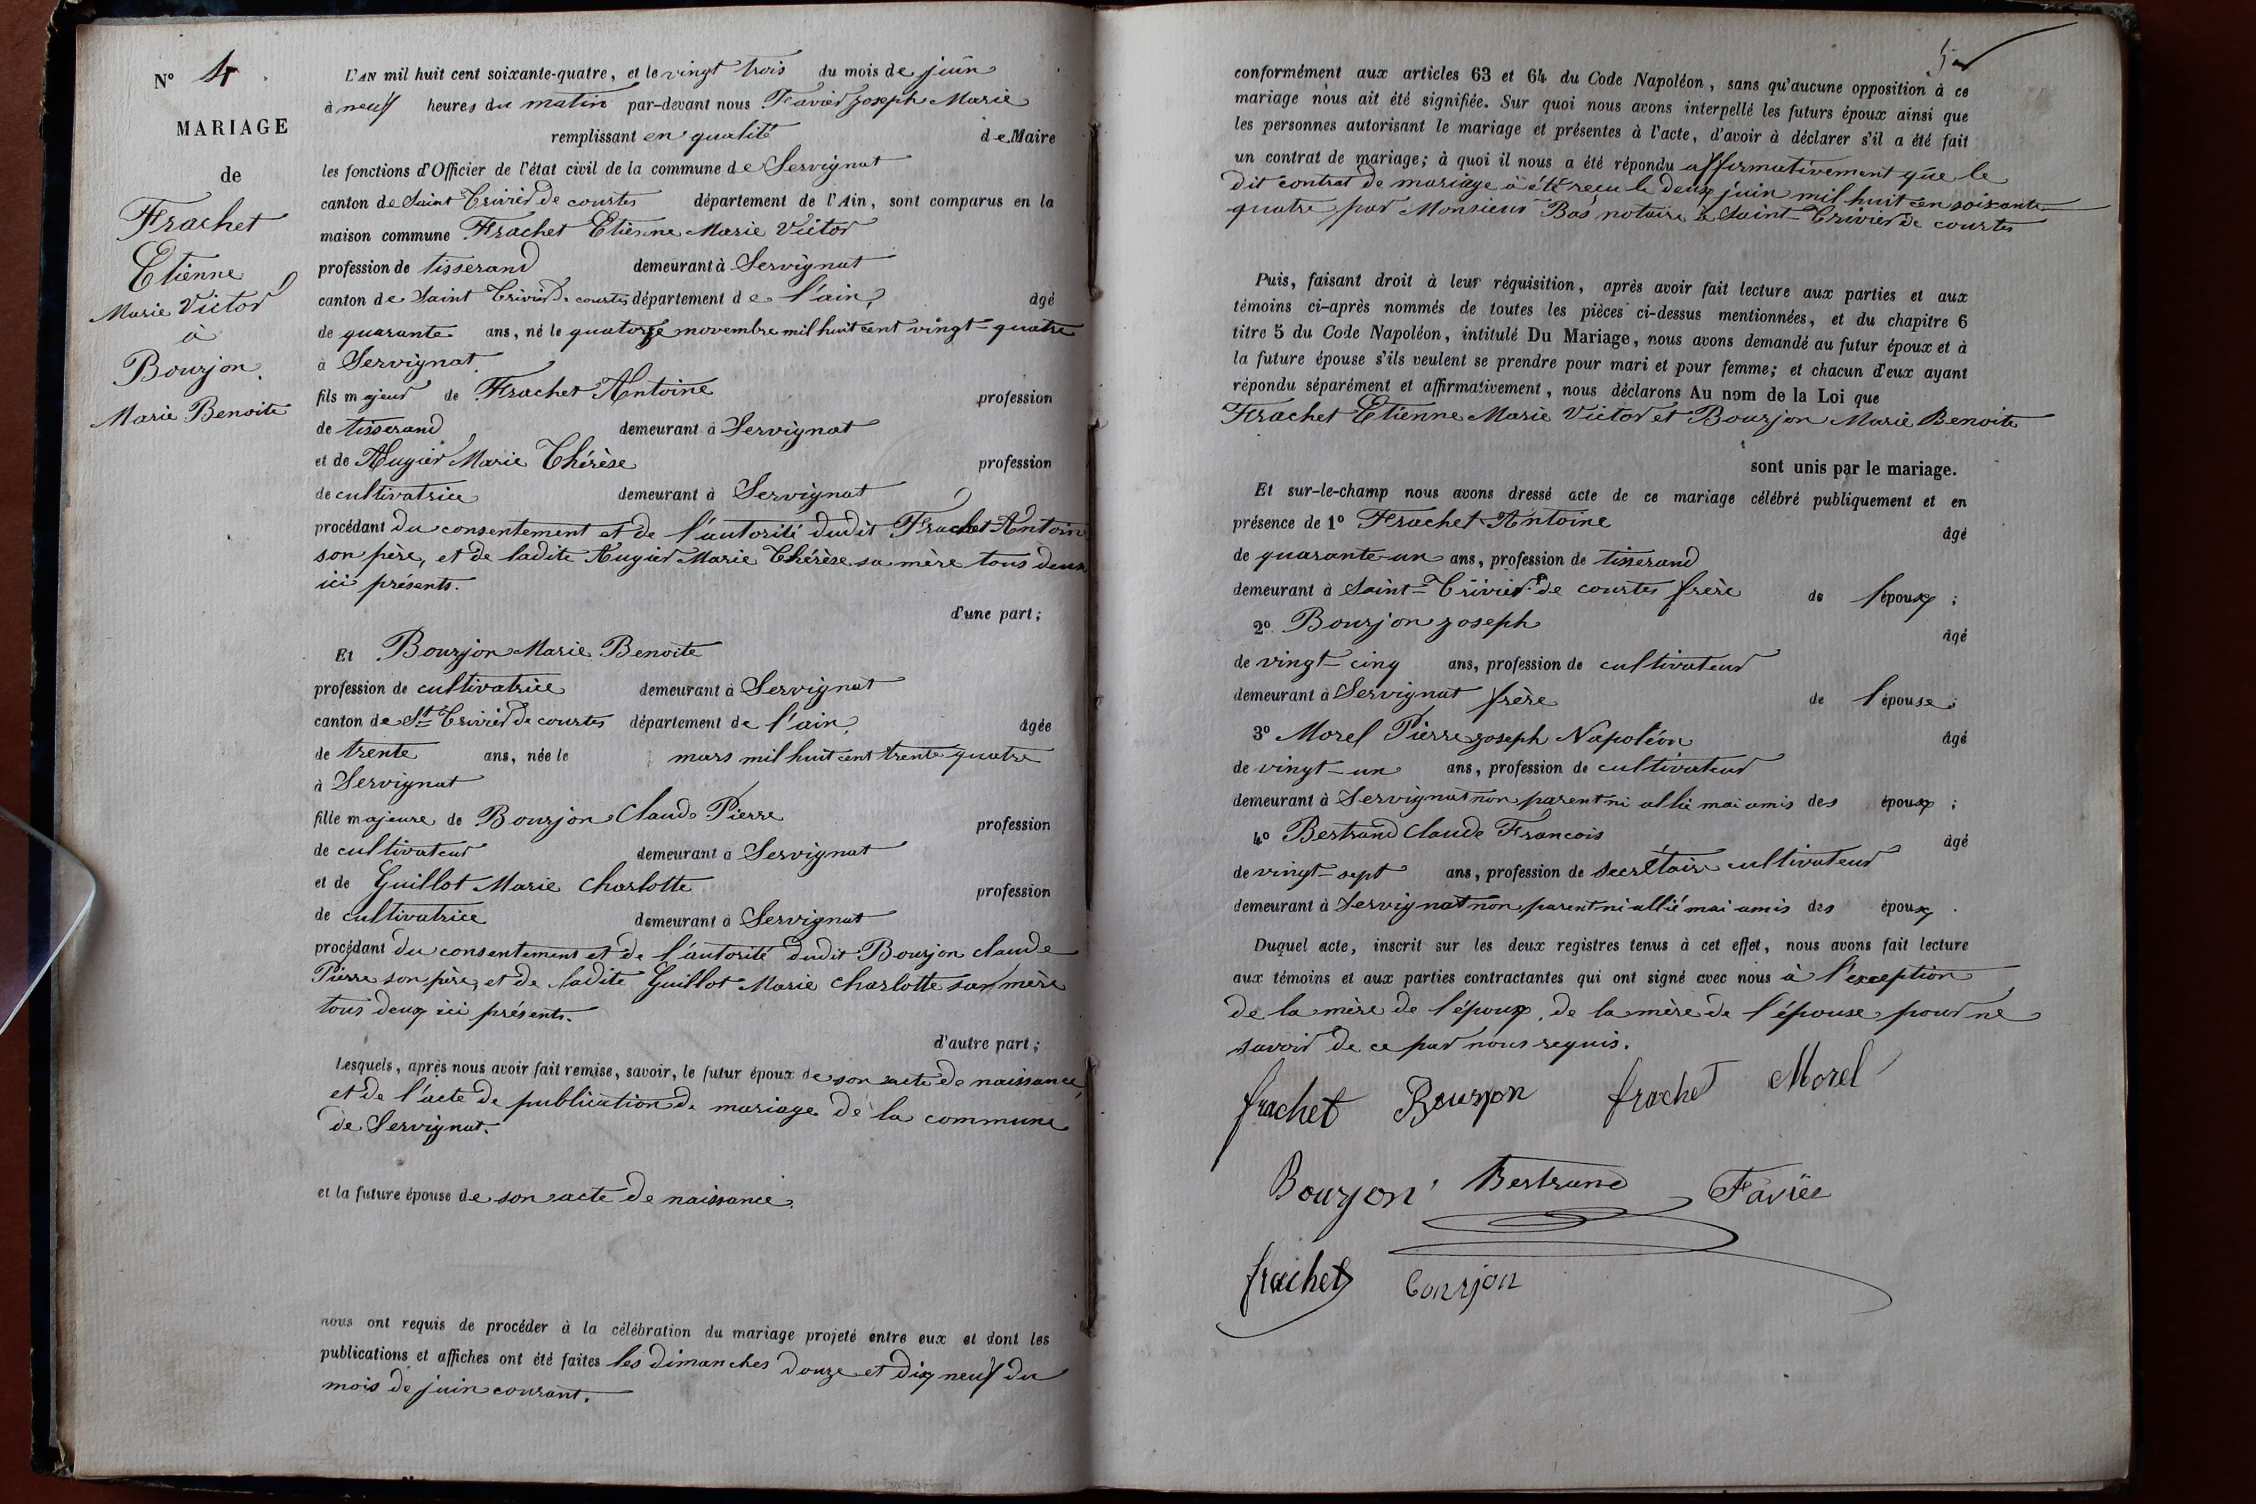 N° 4
MARIAGE
de
Frachet
Etienne
Marie Victor
à
Bourjon
Marie Benoite
L'AN mil huit cent soixante-quatre, et le vingt trois du mois de juin
à neuf heures du matin par-devant nous Favier Joseph Marie
remplissant en qualité de Maire
les fonctions d'Officier de l'état civil de la commune de Servignat
canton de Saint Trivier de courtes département de l'Ain, sont comparus en la
maison commune Frachet Etienne Marie Victor
profession de tisserand demeurant à Servignat
canton de Saint Trivier de courtes département de l'ain, âgé
de quarante ans, né le quatorze novembre mil huit cent vingt-quatre
à Servignat
fils majeur de Frachet Antoine profession
de tisserand demeurant à Servignat
et de Augier Marie Thérèse profession
de cultivatrice demeurant à Servignat
procédant du consentement et de l'autorité dudit Frachet Antoine
son père, et de ladite Augier Marie Thérèse sa mère tous deux
ici présents.
d'une part;
Et Bourjon Marie Benoite
profession de cultivatrice demeurant à Servignat
canton de St Trivier de courtes département de l'ain, âgée
de trente ans, née le mars mil huit cent trente quatre
à Servignat
fille majeure de Bourjon Claude Pierre profession
de cultivateur demeurant à Servignat
et de Guillot Marie Charlotte profession
de cultivatrice demeurant à Servignat
procédant du consentement et de l'autorité dudit Bourjon claude
Pierre son père, et de ladite Guillot Marie Charlotte sa mère
tous deux ici présents.
d'autre part;
Lesquels, après nous avoir fait remise, savoir, le futur époux de son acte de naissance,
et de l'acte de publication de mariage de la commune
de Servignat.
et la future épouse de son acte de naissance.
nous ont requis de procéder à la célébration du mariage projeté entre eux et dont les
publications et affiches ont été faites les dimanches douze et dix neuf du
mois de juin courant.
5
conformément aux articles 63 et 64 du Code Napoléon, sans qu'aucune opposition à ce
mariage nous ait été signifiée. Sur quoi nous avons interpellé les futurs époux ainsi que
les personnes autorisant le mariage et présentes à l'acte, d'avoir à déclarer s'il a été fait
un contrat de mariage; à quoi il nous a été répondu affirmativement que le
dit contrat de mariage a été reçu le deux juin mil huit cen soixante
quatre par Monsieur Bas notaire à Saint-Trivier de courtes
Puis, faisant droit à leur réquisition, après avoir fait lecture aux parties et aux
témoins ci-après nommés de toutes les pièces ci-dessus mentionnées, et du chapitre 6
titre 5 du Code Napoléon, intitulé Du Mariage, nous avons demandé au futur époux et à
la future épouse s'ils veulent se prendre pour mari et pour femme; et chacun d'eux ayant
répondu séparément et affirmativement, nous déclarons Au nom de la Loi que
Frachet Etienne Marie Victor et Bourjon Marie Benoite
sont unis par le mariage.
Et sur-le-champ nous avons dressé acte de ce mariage célébré publiquement et en
présence de 1° Frachet Antoine âgé
de quarante-un ans, profession de tisserand
demeurant à Saint-Trivier de courtes frère de l'époux;
2° Bourjon Joseph âgé
de vingt-cinq ans, profession de cultivateur
demeurant à Servignat frère de l'épouse;
3° Morel Pierre Joseph Napoléon âgé
de vingt-un ans, profession de cultivateur
demeurant à Servignat non parent ni allié mai amis des époux;
4° Bertrand Claude Francois âgé
de vingt-sept ans, profession de secrétaire cultivateur
demeurant à Servignat non parent ni allié mai amis des époux.
Duquel acte, inscrit sur les deux registres tenus à cet effet, nous avons fait lecture
aux témoins et aux parties contractantes qui ont signé avec nous à l'exception
de la mère de l'époux, de la mère de l'épouse pour ne
savoir de ce par nous requis.
frachet Bourjon frachet Morel
Bourjon Bertrand Favier
frachet bourjon